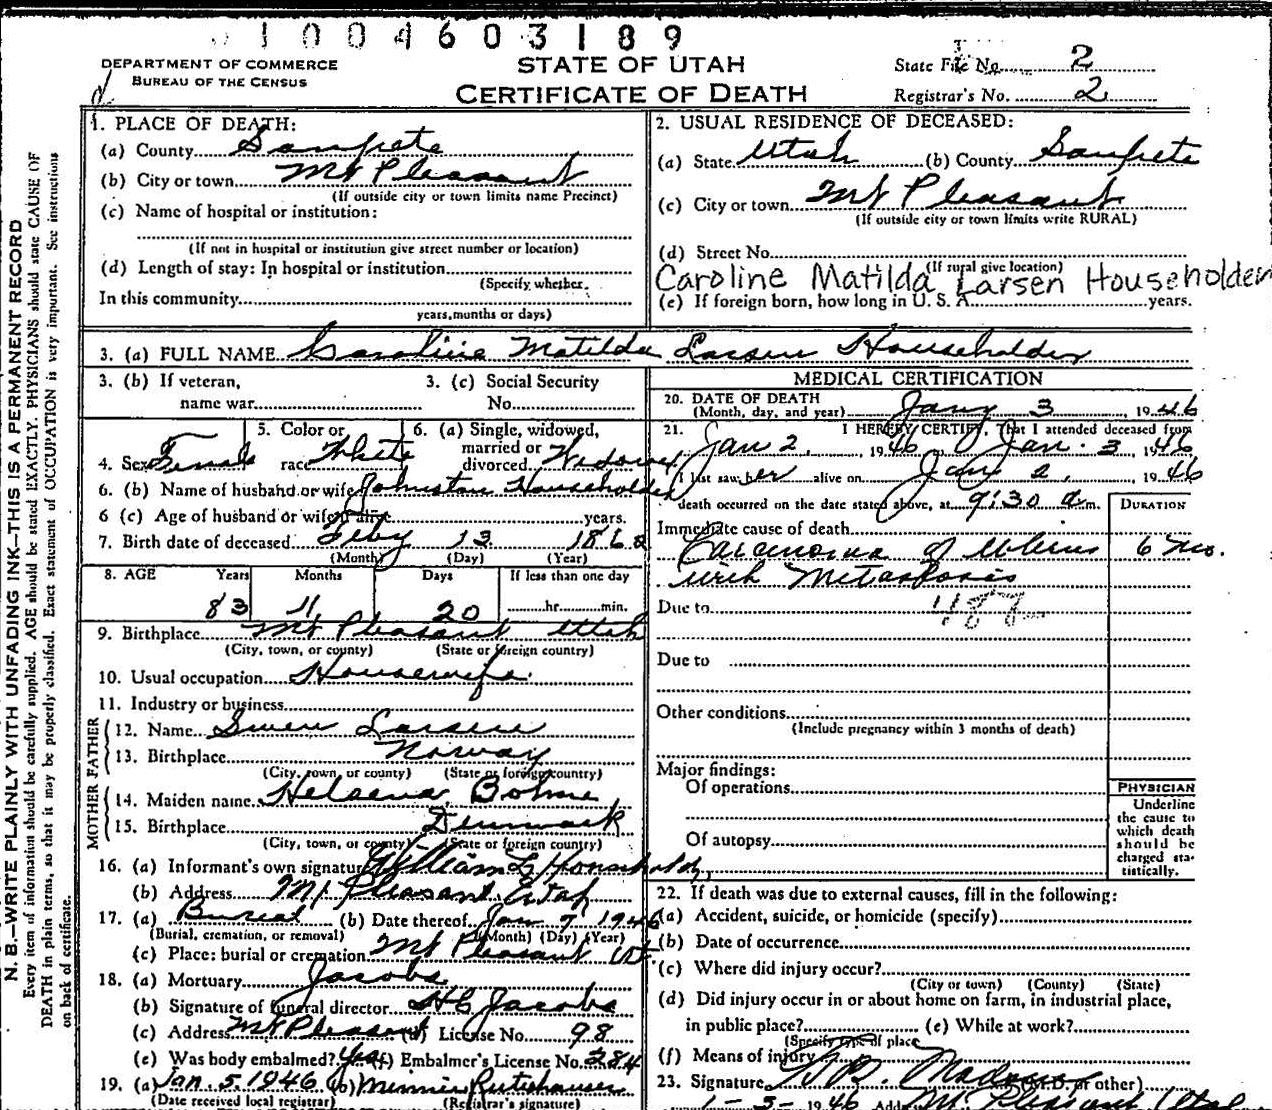 1004603189
DEPARTMENT OF COMMERCE
BUREAU OF THE CENSUS
STATE OF UTAH
CERTIFICATE OF DEATH
State File No. 2
Registrar's No. 2
N. B.—WRITE PLAINLY WITH UNFADING INK—THIS IS A PERMANENT RECORD
Every item of information should be carefully supplied. AGE should be stated EXACTLY. PHYSICIANS should state CAUSE OF
DEATH in plain terms, so that it may be properly classified. Exact statement of OCCUPATION is very important. See instructions
on back of certificate.
1. PLACE OF DEATH:
(a) County Sanpete
(b) City or town Mt Pleasant
(If outside city or town limits name Precinct)
(c) Name of hospital or institution:
(If not in hospital or institution give street number or location)
(d) Length of stay: In hospital or institution
(Specify whether
In this community
years, months or days)
2. USUAL RESIDENCE OF DECEASED:
(a) State Utah (b) County Sanpete
(c) City or town Mt Pleasant
(If outside city or town limits write RURAL)
(d) Street No.
(If rural give location)
Caroline Matilda Larsen Householder
(e) If foreign born, how long in U. S. A. years.
3. (a) FULL NAME Caroline Matilda Larsen Householder
3. (b) If veteran,
name war
3. (c) Social Security
No.
4. Sex Female
5. Color or
race White
6. (a) Single, widowed,
married or
divorced Widowed
6. (b) Name of husband or wife Johnston Householder
6 (c) Age of husband or wife if alive years.
7. Birth date of deceased Feby 13 1862
(Month) (Day) (Year)
8. AGE Years Months Days If less than one day
83 11 20 hr. min.
9. Birthplace Mt Pleasant Utah
(City, town, or county) (State or foreign country)
10. Usual occupation Housewife
11. Industry or business
FATHER
12. Name Swen Larsen
13. Birthplace Norway
(City, town or county) (State or foreign country)
MOTHER
14. Maiden name Bohne
15. Birthplace Denmark
(City, town, or county) (State or foreign country)
16. (a) Informant's own signature William L Householder
(b) Address Mt. Pleasant, Utah
17. (a) Burial (b) Date thereof Jan 7 1946
(Burial, cremation, or removal) (Month) (Day) (Year)
(c) Place: burial or cremation Mt Pleasant Ut
18. (a) Mortuary Jacobs
(b) Signature of funeral director H C Jacobs
(c) Address Mt Pleasant (d) License No. 98
(e) Was body embalmed? Yes (f) Embalmer's License No. 284
19. (a) Jan. 5. 1946 (b) Minnie
(Date received local registrar) (Registrar's signature)
MEDICAL CERTIFICATION
20. DATE OF DEATH
(Month, day, and year) Jany 3, 1946
21. I HEREBY CERTIFY, That I attended deceased from
Jan 2, 1946 Jan. 3 1946
I last saw her alive on Jany 2, 1946
death occurred on the date stated above, at 9:30 a m.
DURATION
Immediate cause of death
Carcinoma of Uterus 6 Mo.
with Metastasis
Due to
Due to
Other conditions
(Include pregnancy within 3 months of death)
Major findings:
Of operations
Of autopsy
PHYSICIAN
Underline
the cause to
which death
should be
charged sta-
tistically.
22. If death was due to external causes, fill in the following:
(a) Accident, suicide, or homicide (specify)
(b) Date of occurrence
(c) Where did injury occur?
(City or town) (County) (State)
(d) Did injury occur in or about home on farm, in industrial place,
in public place? (e) While at work?
(Specify type of place
(f) Means of injury
23. Signature (M.D. or other)
1-5-1946 Mt Pleasant Utah